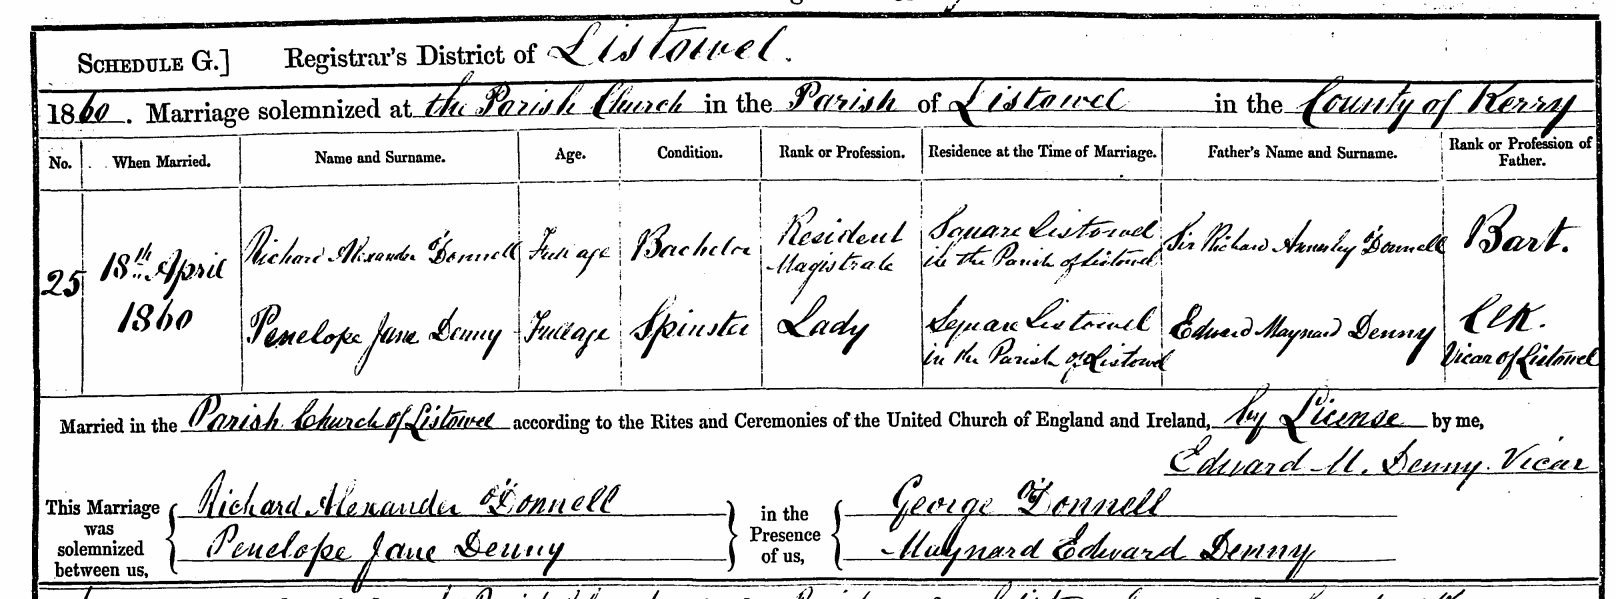 SCHEDULE G.] Registrar's District of Listowel.
1860. Marriage solemnized at the Parish Church in the Parish of Listowel in the County of Kerry
No. When Married. Name and Surname. Age. Condition. Rank or Profession. Residence at the Time of Marriage. Father's Name and Surname. Rank or Profession of Father.
25 18th April 1860 Richard Alexander O'Donnell Full age Bachelor Resident Magistrate Square Listowel in the Parish of Listowel Sir Richard Annesley O'Donnell Bart.
Penelope Jane Denny Full age Spinster Lady Square Listowel in the Parish of Listowel Edward Maynard Denny Clk. Vicar of Listowel
Married in the Parish Church of Listowel according to the Rites and Ceremonies of the United Church of England and Ireland, by License by me,
Edward M. Denny. Vicar
This Marriage was solemnized between us, Richard Alexander O'Donnell in the Presence of us, George O'Donnell
Penelope Jane Denny Maynard Edward Denny